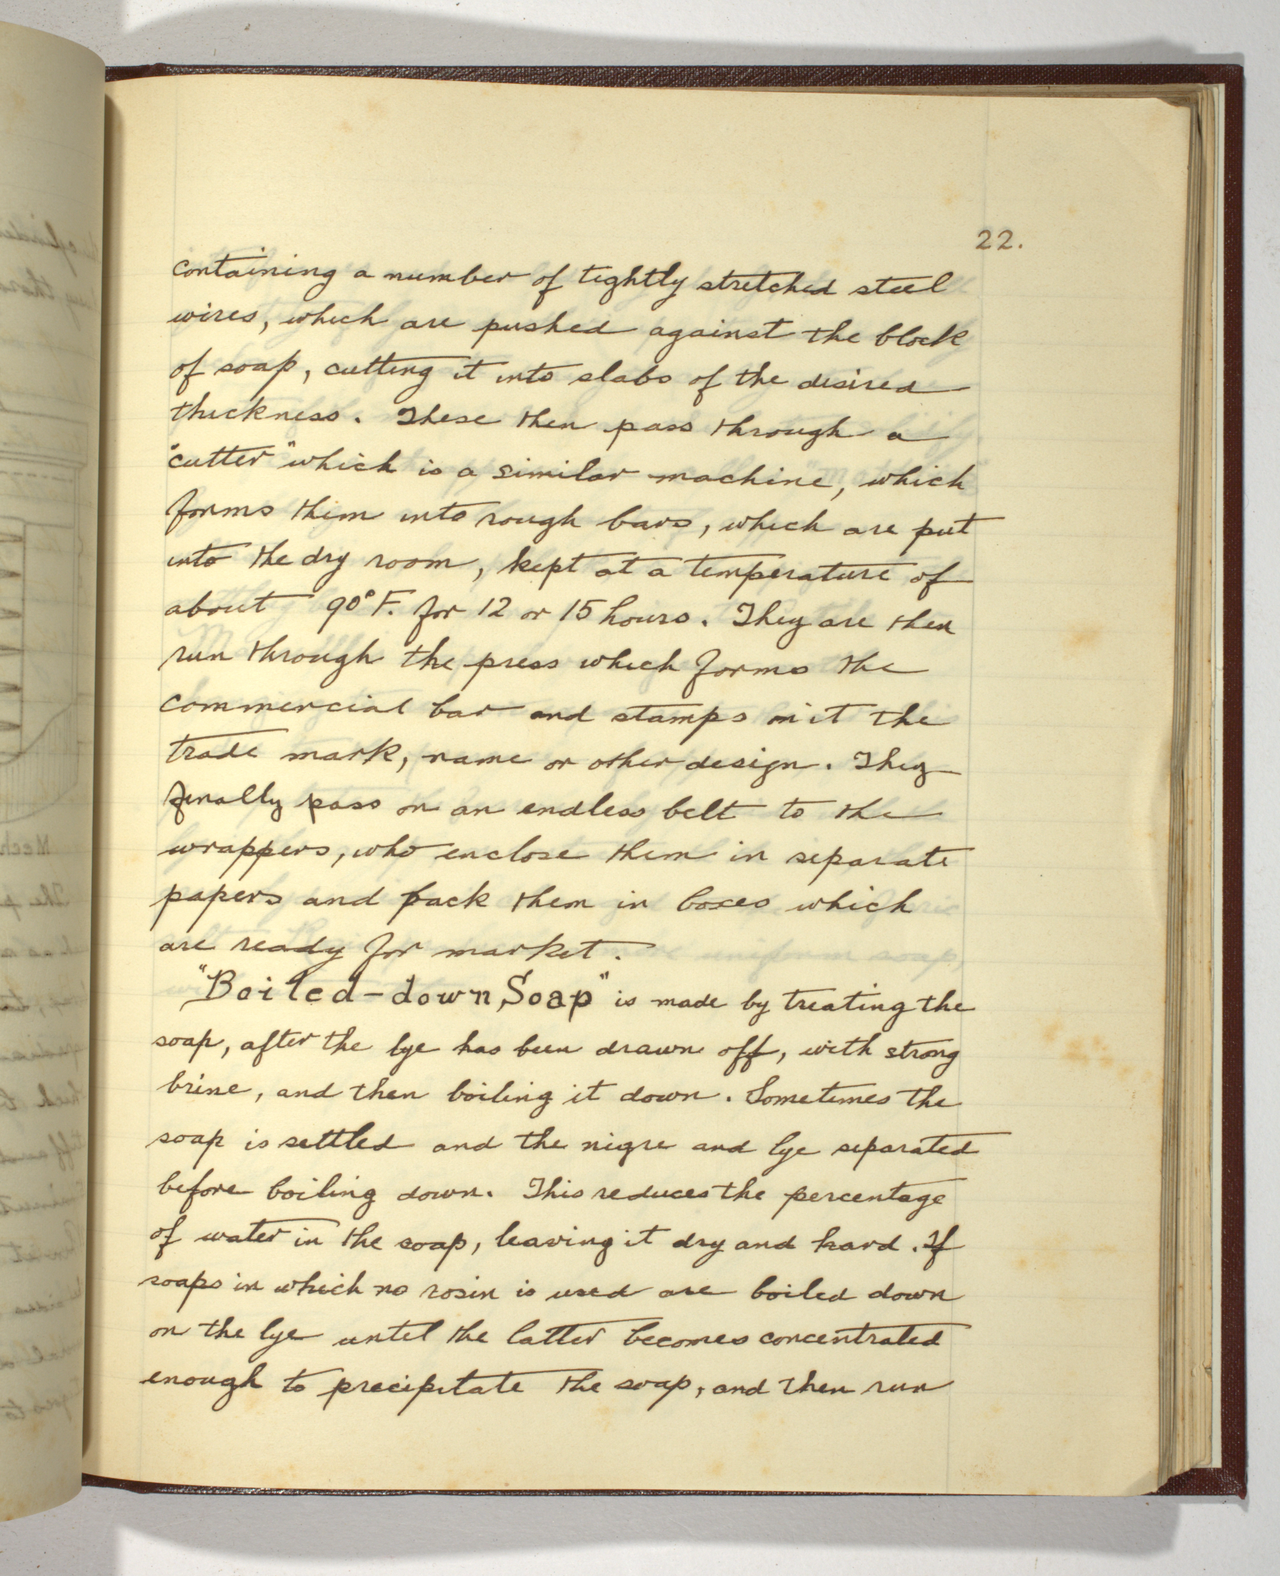 22.
containing a number of tightly stretched steel
wires, which are pushed against the block
of soap, cutting it into slabs of the desired
thickness. These then pass through a
"cutter" which is a similar machine, which
forms them into rough bars, which are put
into the dry room, kept at a temperature of
about 90°F. for 12 or 15 hours. They are then
run through the press which forms the
commercial bar and stamps on it the
trade mark, name or other design. They
finally pass on an endless belt to the
wrappers, who enclose them in separate
papers and pack them in boxes which
are ready for market.
"Boiled-down Soap" is made by treating the
soap, after the lye has been drawn off, with strong
brine, and then boiling it down. Sometimes the
soap is settled and the nigre and lye separated
before boiling down. This reduces the percentage
of water in the soap, leaving it dry and hard. If
soaps in which no rosin is used are boiled down
on the lye until the latter becomes concentrated
enough to precipitate the soap, and then run